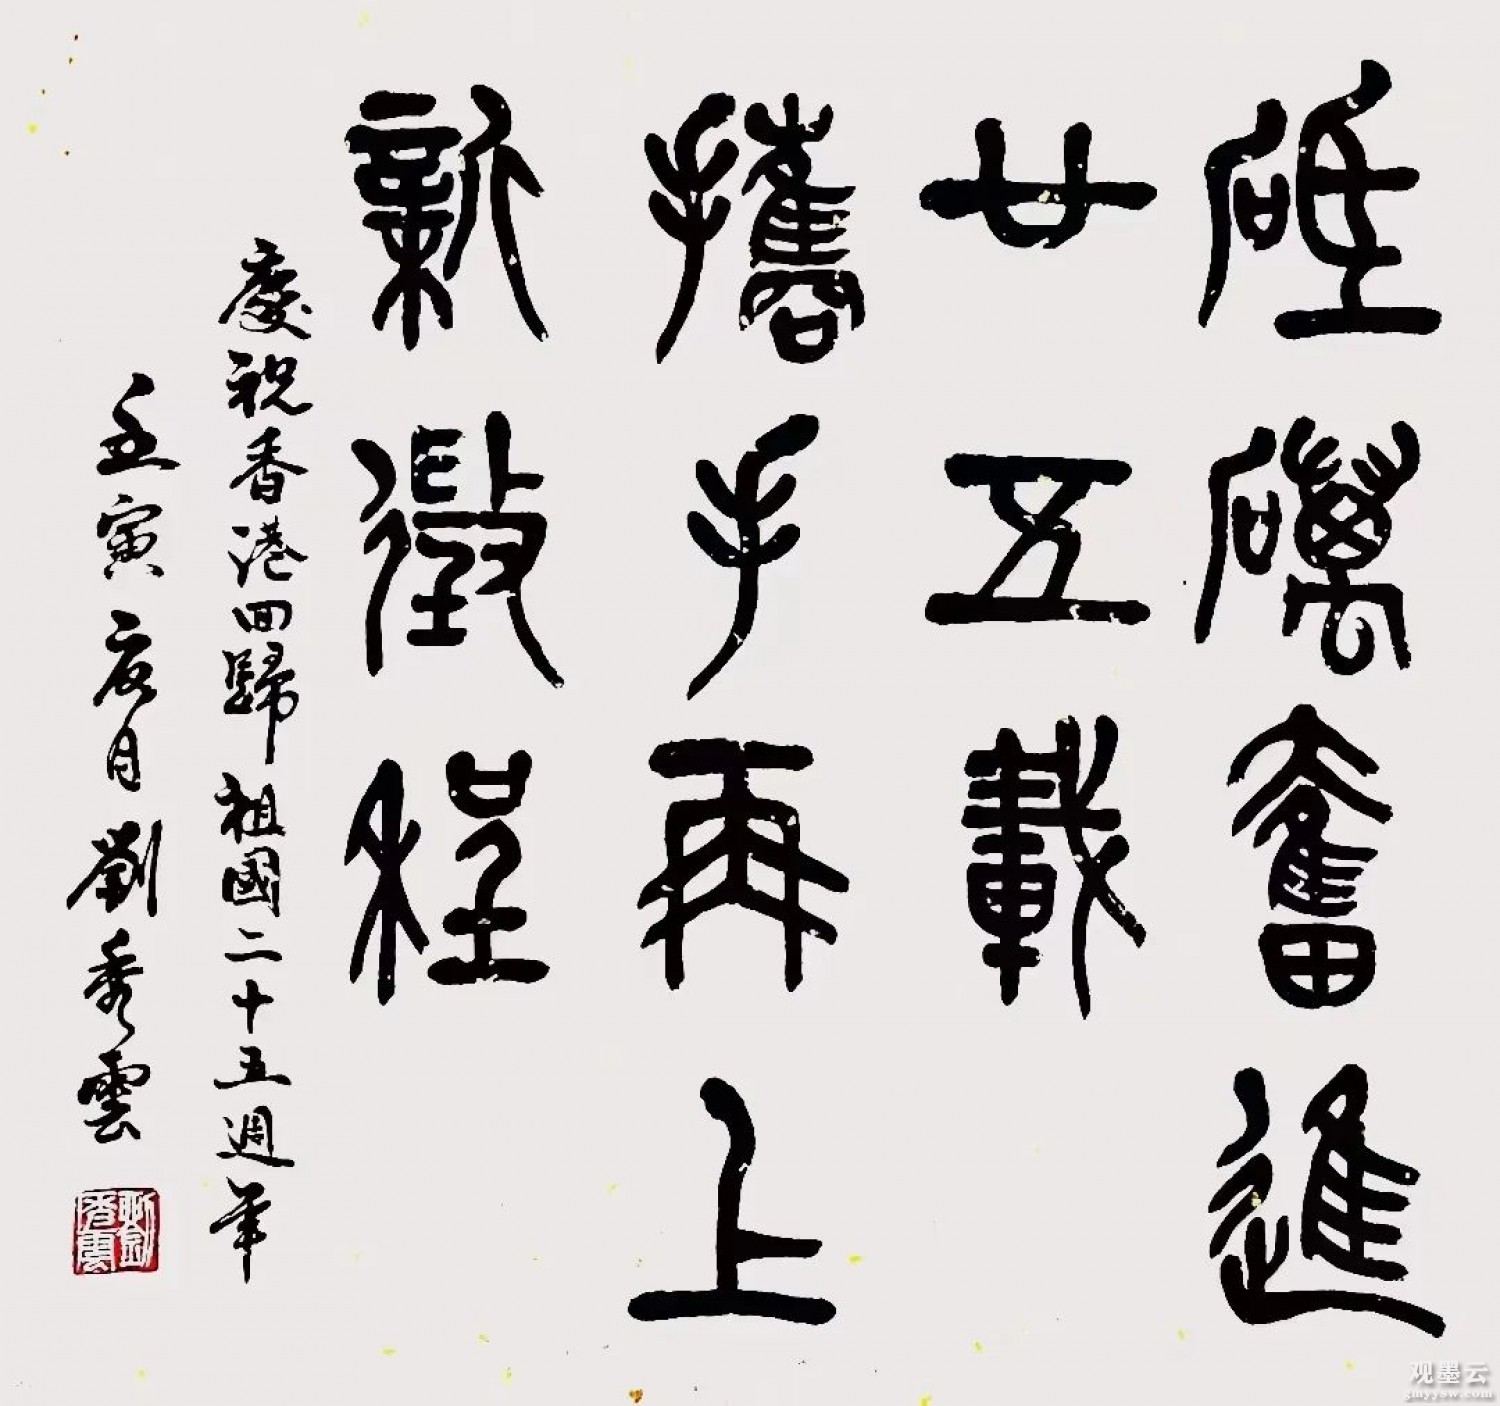 砥礪奮進
廿五載
攜手再上
新徵程
慶祝香港回歸祖國二十五週年
壬寅夏月劉秀雲
劉秀雲
观墨云
gmyysw.com